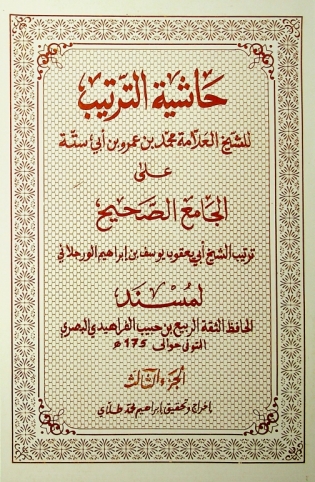 حاشية الترتيب
للشيخ العلامة محمد بن عمرو بن أبي ستة
على
الجامع الصحيح
ترتيب الشيخ أبي يعقوب يوسف بن إبراهيم الورجلاني
لمسند
الحافظ الثقة الربيع بن حبيب الفراهيدي البصري
المتوفى حوالى 175 ه
الجزء الثالث
إخراج وتحقيق إبراهيم محمد طلاي